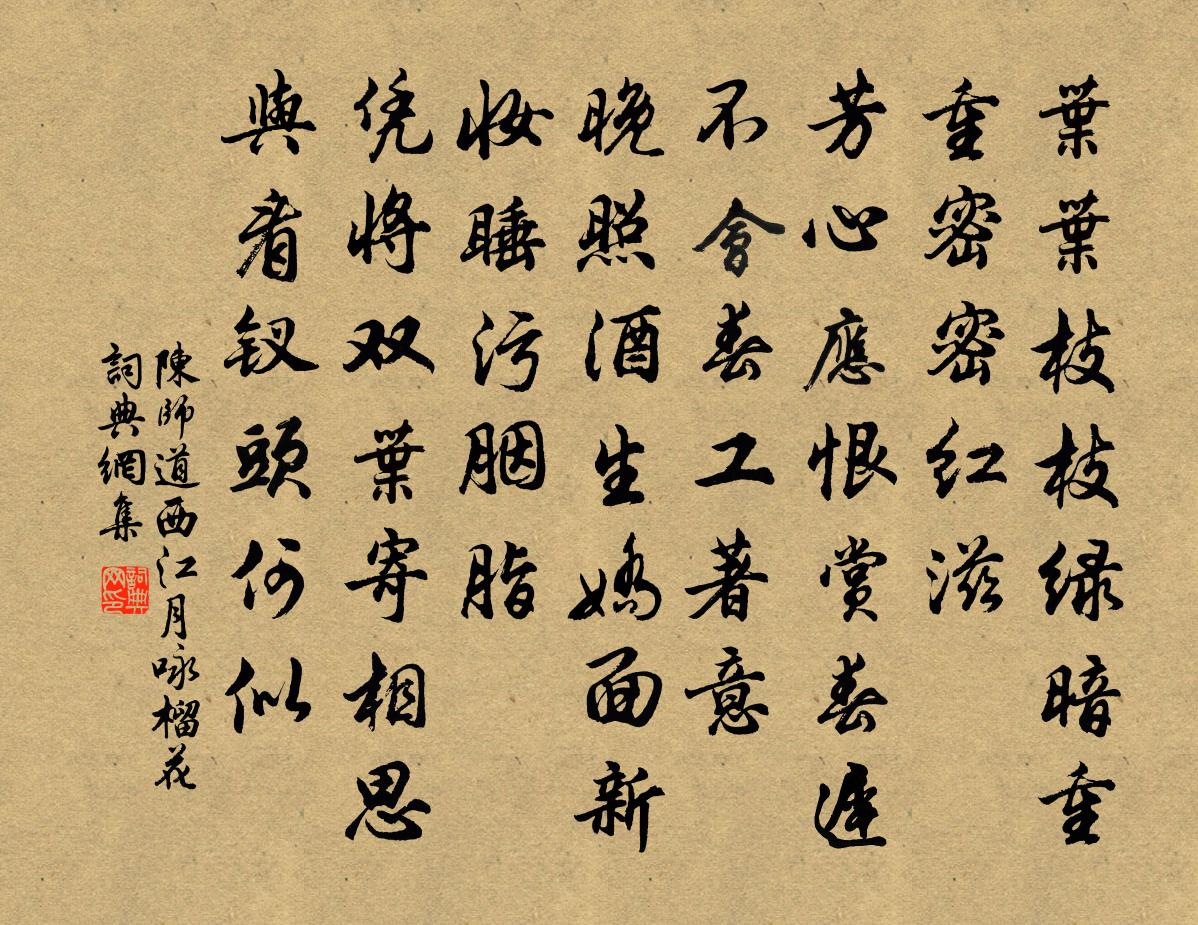 葉葉枝枝绿暗重
重密密红滋
芳心應恨赏春遲
不會春工著意
晚照酒生嬌面新
妆睡污胭脂
凭将双葉寄相思
與看钗頭何似
陳師道西江月咏榴花
詞典網集
詞典网印